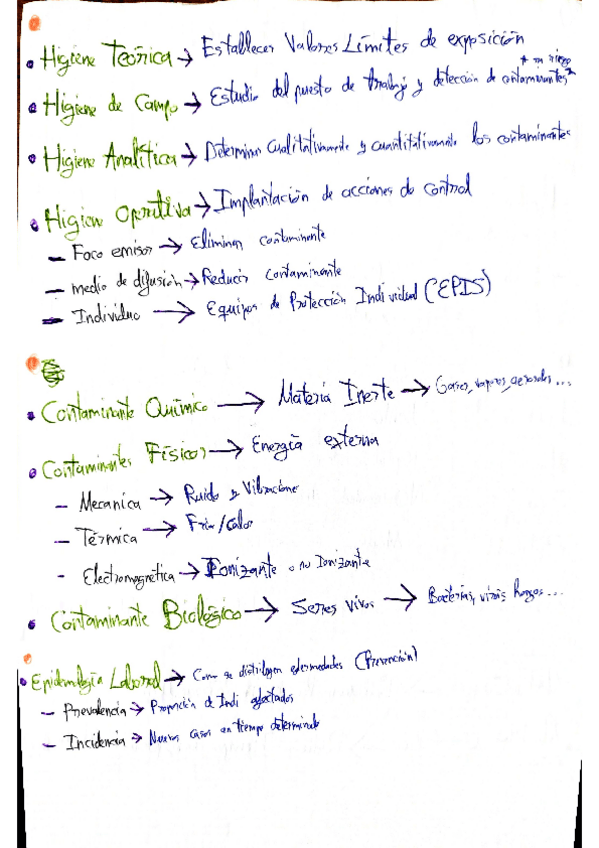 • Higiene Teórica → Establecer Valores Límites de exposición
* sin riesgo
• Higiene de Campo → Estudio del puesto de trabajo y detección de contaminantes*
• Higiene Analítica → Determinar Cualitativamente y cuantitativamente los contaminantes
• Higiene Operativa → Implantación de acciones de control
- Foco emisor → Eliminar contaminante
- medio de difusión → Reducir contaminante
- Individuo → Equipos de Protección Individual (EPIS)
• Contaminante Químico → Materia Inerte → Gases, vapores, aerosoles...
• Contaminantes Físicos → Energía externa
- Mecanica → Ruido y Vibraciones
- Térmica → Frio/calor
- Electromagnética → Ionizante o no Ionizante
• Contaminante Biológico → Seres vivos → Bacterias, virus, hongos...
• Epidemiología Laboral → Como se distribuyen enfermedades (Prevención)
- Prevalencia → Proporción de Indi afectados
- Incidencia → Nuevos casos en tiempo determinado